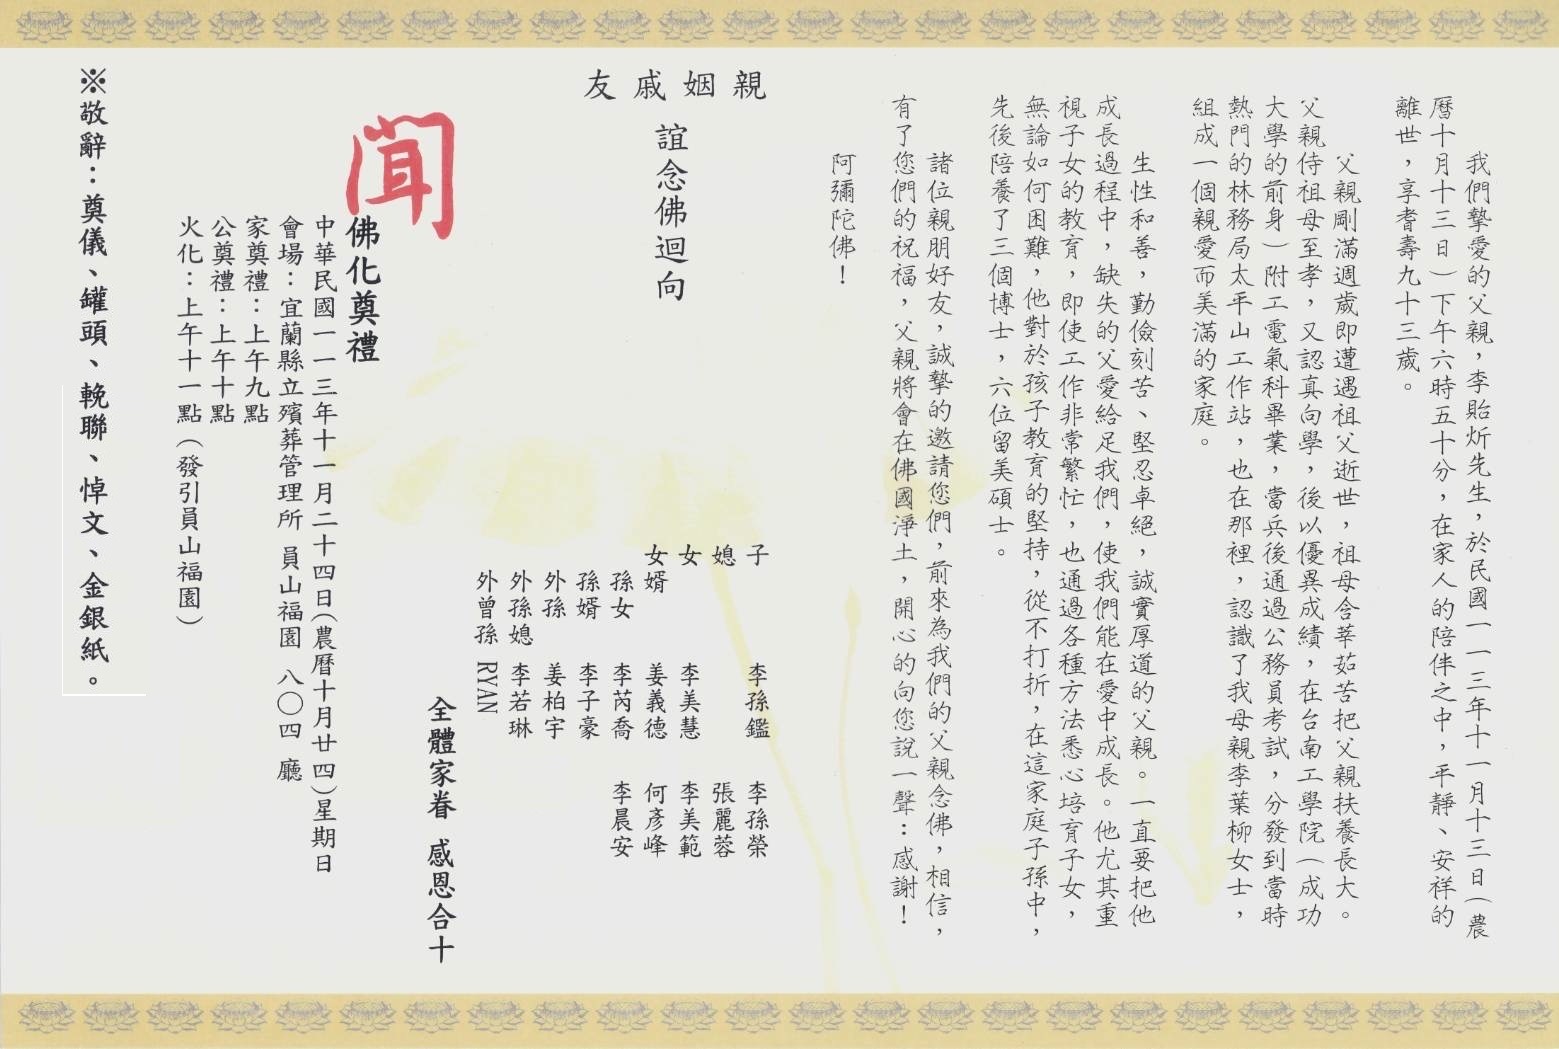 我們摯愛的父親，李貽炘先生，於民國一一三年十一月十三日（農
曆十月十三日）下午六時五十分，在家人的陪伴之中，平靜、安祥的
離世，享耆壽九十三歲。
父親剛滿週歲即遭遇祖父逝世，祖母含莘茹苦把父親扶養長大。
父親侍祖母至孝，又認真向學，後以優異成績，在台南工學院（成功
大學的前身）附工電氣科畢業，當兵後通過公務員考試，分發到當時
熱門的林務局太平山工作站，也在那裡，認識了我母親李葉柳女士，
組成一個親愛而美滿的家庭。
生性和善，勤儉刻苦、堅忍卓絕，誠實厚道的父親。一直要把他
成長過程中，缺失的父愛給足我們，使我們能在愛中成長。他尤其重
視子女的教育，即使工作非常繁忙，也通過各種方法悉心培育子女，
無論如何困難，他對於孩子教育的堅持，從不打折，在這家庭子孫中，
先後陪養了三個博士，六位留美碩士。
諸位親朋好友，誠摯的邀請您們，前來為我們的父親念佛，相信，
有了您們的祝福，父親將會在佛國淨土，開心的向您說一聲：感謝！
阿彌陀佛！
親姻戚友
誼念佛迴向
子 李孫鑑 李孫榮
媳 張麗蓉
女 李美慧 李美範
女婿 姜義德 何彥峰
孫女 李芮喬 李晨安
孫婿 李子豪
外孫 姜柏宇
外孫媳 李若琳
外曾孫 RYAN
全體家眷 感恩合十
聞
佛化奠禮
中華民國一一三年十一月二十四日(農曆十月廿四)星期日
會場：宜蘭縣立殯葬管理所 員山福園 八〇四 廳
家奠禮：上午九點
公奠禮：上午十點
火化：上午十一點（發引員山福園）
※敬辭：奠儀、罐頭、輓聯、悼文、金銀紙。